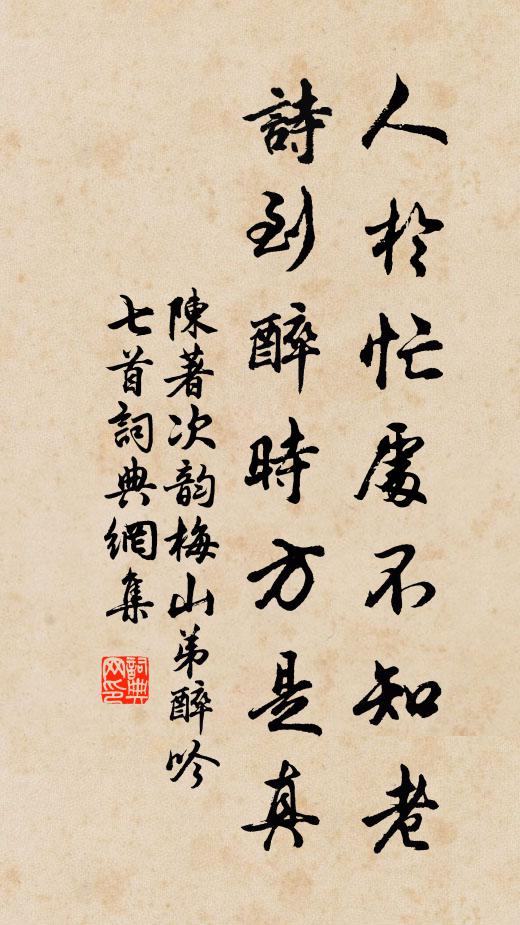 人於忙處不知老
詩到醉時方是真
陳著次韵梅山弟醉吟
七首詞典網集
詞典網印